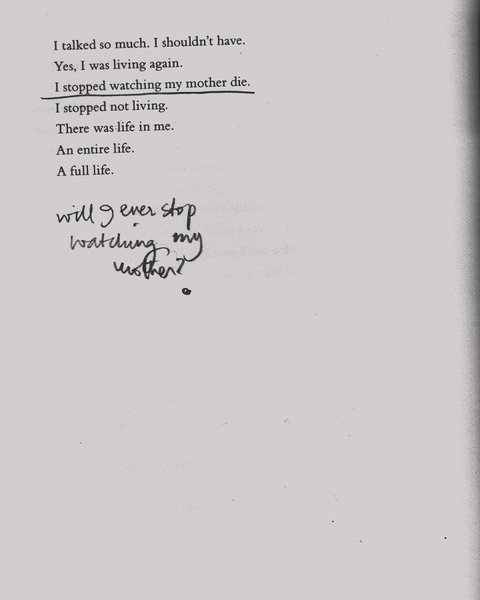 I talked so much. I shouldn't have.
Yes, I was living again.
I stopped watching my mother die.
I stopped not living.
There was life in me.
An entire life.
A full life.
will I ever stop
watching my
mother?